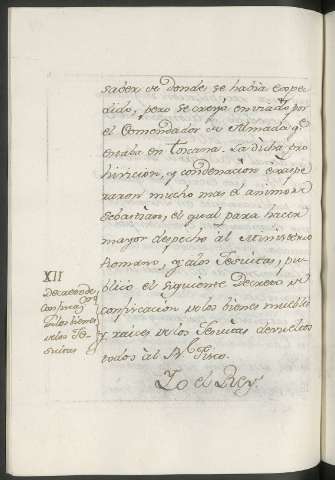 saber de donde se habia expe-
dido, pero se creya enviado por
el Comendador de Almada qe
estaba en Toscana. La dicha pro
hivicion, y condenacion exaspe
raron mucho mas el animo de
Sebastian, el qual para hacer
mayor despecho al Ministerio
Romano, y a los Jesuitas, pu-
blicó el siguiente Decreto de
confiscacion de los bienes mueble
y raices de los Jesuitas devueltos
todos al Rl Fisco.
Yo el Rey.
XII
Decreto de
confiscaon
de los bienes
de los Je-
suitas